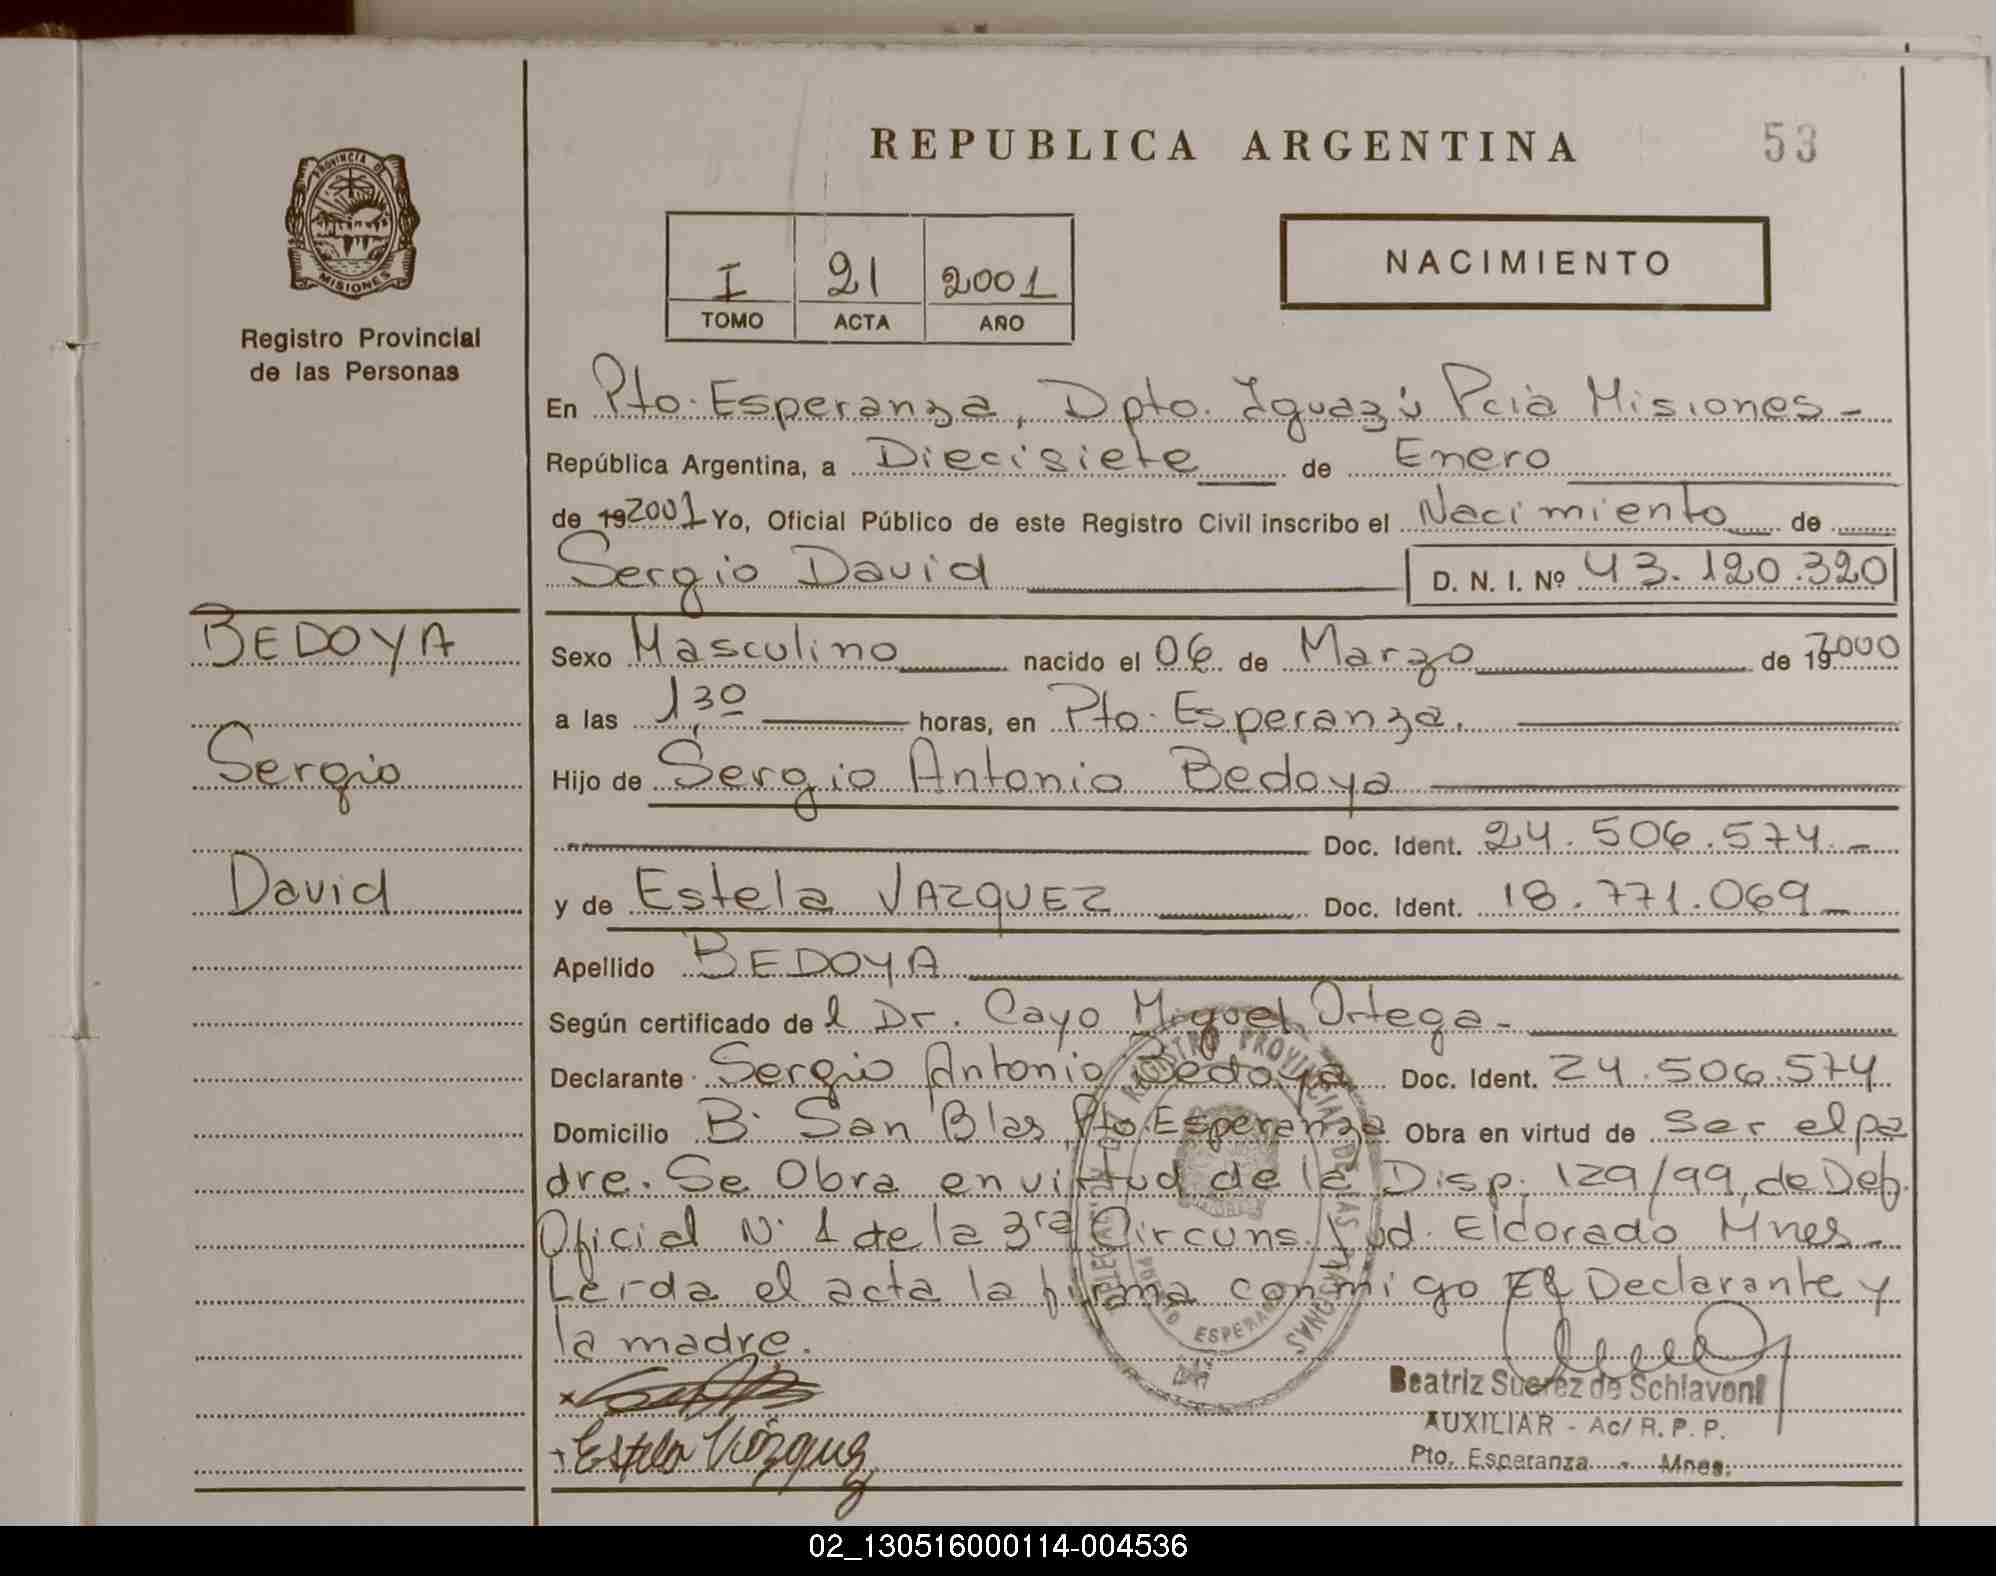 REPUBLICA ARGENTINA
53
PROVINCIA DE
MISIONES
Registro Provincial
de las Personas
I 21 2001
TOMO ACTA AÑO
NACIMIENTO
En Pto. Esperanza, Dpto. Iguazú Pcia Misiones -
República Argentina, a Diecisiete de Enero
de 19 2001 Yo, Oficial Público de este Registro Civil inscribo el Nacimiento de
Sergio David D. N. I. Nº 43.120.320
BEDOYA
Sergio
David
Sexo Masculino nacido el 06 de Marzo de 19 2000
a las 1,30 horas, en Pto. Esperanza.
Hijo de Sergio Antonio Bedoya
Doc. Ident. 24.506.574.-
y de Estela VAZQUEZ Doc. Ident. 18.771.069-
Apellido BEDOYA
Según certificado de l Dr. Cayo Miguel Ortega-
Declarante Sergio Antonio Bedoya Doc. Ident. 24.506.574
Domicilio B· San Blas, Pto. Esperanza Obra en virtud de Ser el pa
dre. Se Obra en virtud de la Disp. 129/99, de Def.
Oficial Nº 1 de la 3ra Circuns. Jud. Eldorado Mnes-
Leida el acta la firma conmigo El Declarante y
la madre.
REGISTRO PROVINCIAL DE LAS PERSONAS
Beatriz Suerez de Schiavoni
AUXILIAR - Ac/ R. P. P.
Pto. Esperanza - Mnes.
Estela Vázquez
02_130516000114-004536